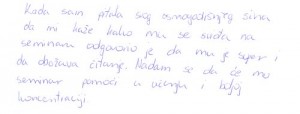 Kada sam pitala svog osmogodišnjeg sina
da mi kaže kako mu se sviđa na
seminaru odgovorio je da mu je super i
da obožava čitanje. Nadam se da će mu
seminar pomoći u učenju i boljoj
koncentraciji.